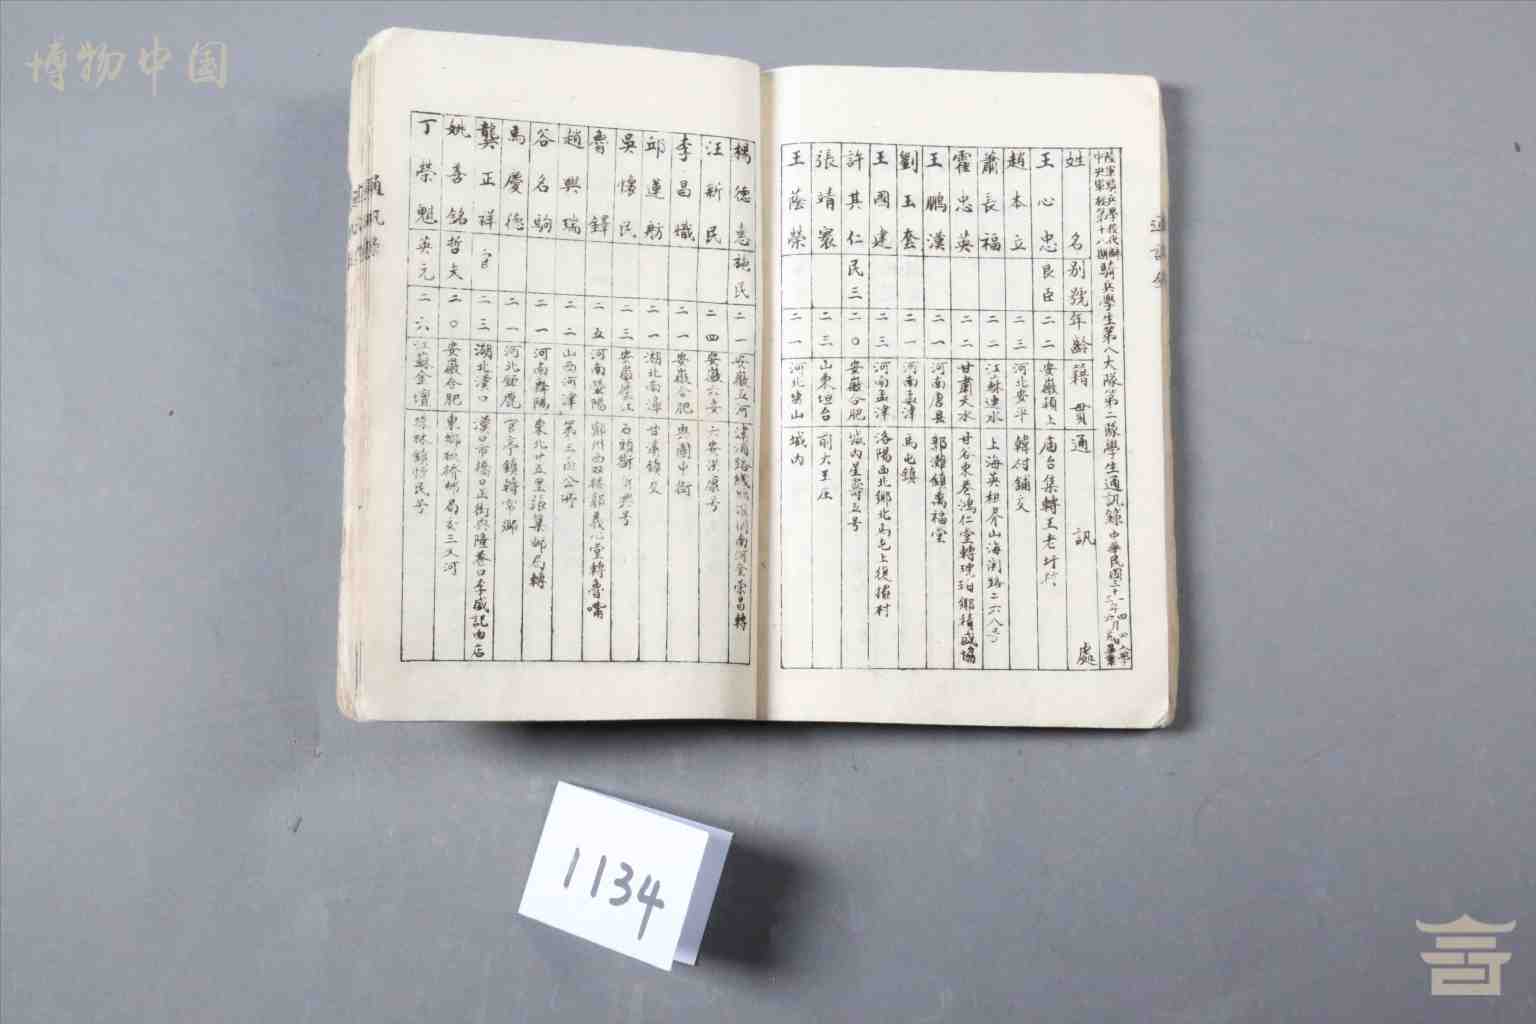 博物中国
陸軍騎兵學校代辦
中央軍校第十八期
騎兵學生第八大隊第二隊學生通訊錄
姓名 別號 年齡 籍貫 通訊處
王心忠 良臣 二二 安徽潁上 廟台集轉王老圩
趙本立 二三 河北安平 韓村鋪交
蕭長福 二二 江蘇漣水 上海英租界山海關路二六八号
霍忠英 二二 甘肅天水 甘谷東巷鴻仁堂轉琥珀鄉積盛協
王鵬漢 二一 河南唐县 郭灘鎮萬福堂
劉玉套 二一 河南孟津 馬屯鎮
王國建 二三 河南孟津 洛陽西北鄉北馬屯上復村
許其仁 民三 二〇 安徽合肥 城內星五号
張靖寰 二三 山東 前大王庄
王蔭榮 二一 河北唐山 城內
楊德惠 施民 二一 安徽五河
汪新民 二四 安徽六安 六安洪康号
李昌熾 二一 安徽合肥 興園中街
邱蓮舫 二一 湖北南漳 甘溪鎮交
吳懷民 二三 安徽 石頭街
魯鐸 二五 河南滎陽 鄭州西郭義心堂轉魯嘴
趙興瑞 二二 山西河津 第三區公所
谷名駒 二一 河南舞陽 東北廿五里張集郵局轉
馬慶德 二一 河北鉅鹿 官亭鎮轉常鄉
龔正祥 二三 湖北漢口 漢口市橋口正街興隆巷口李盛記西店
姚善銘 哲夫 二〇 安徽合肥 東鄉撮橋郵局交三叉河
丁榮魁 英元 二六 江蘇金壇
1134